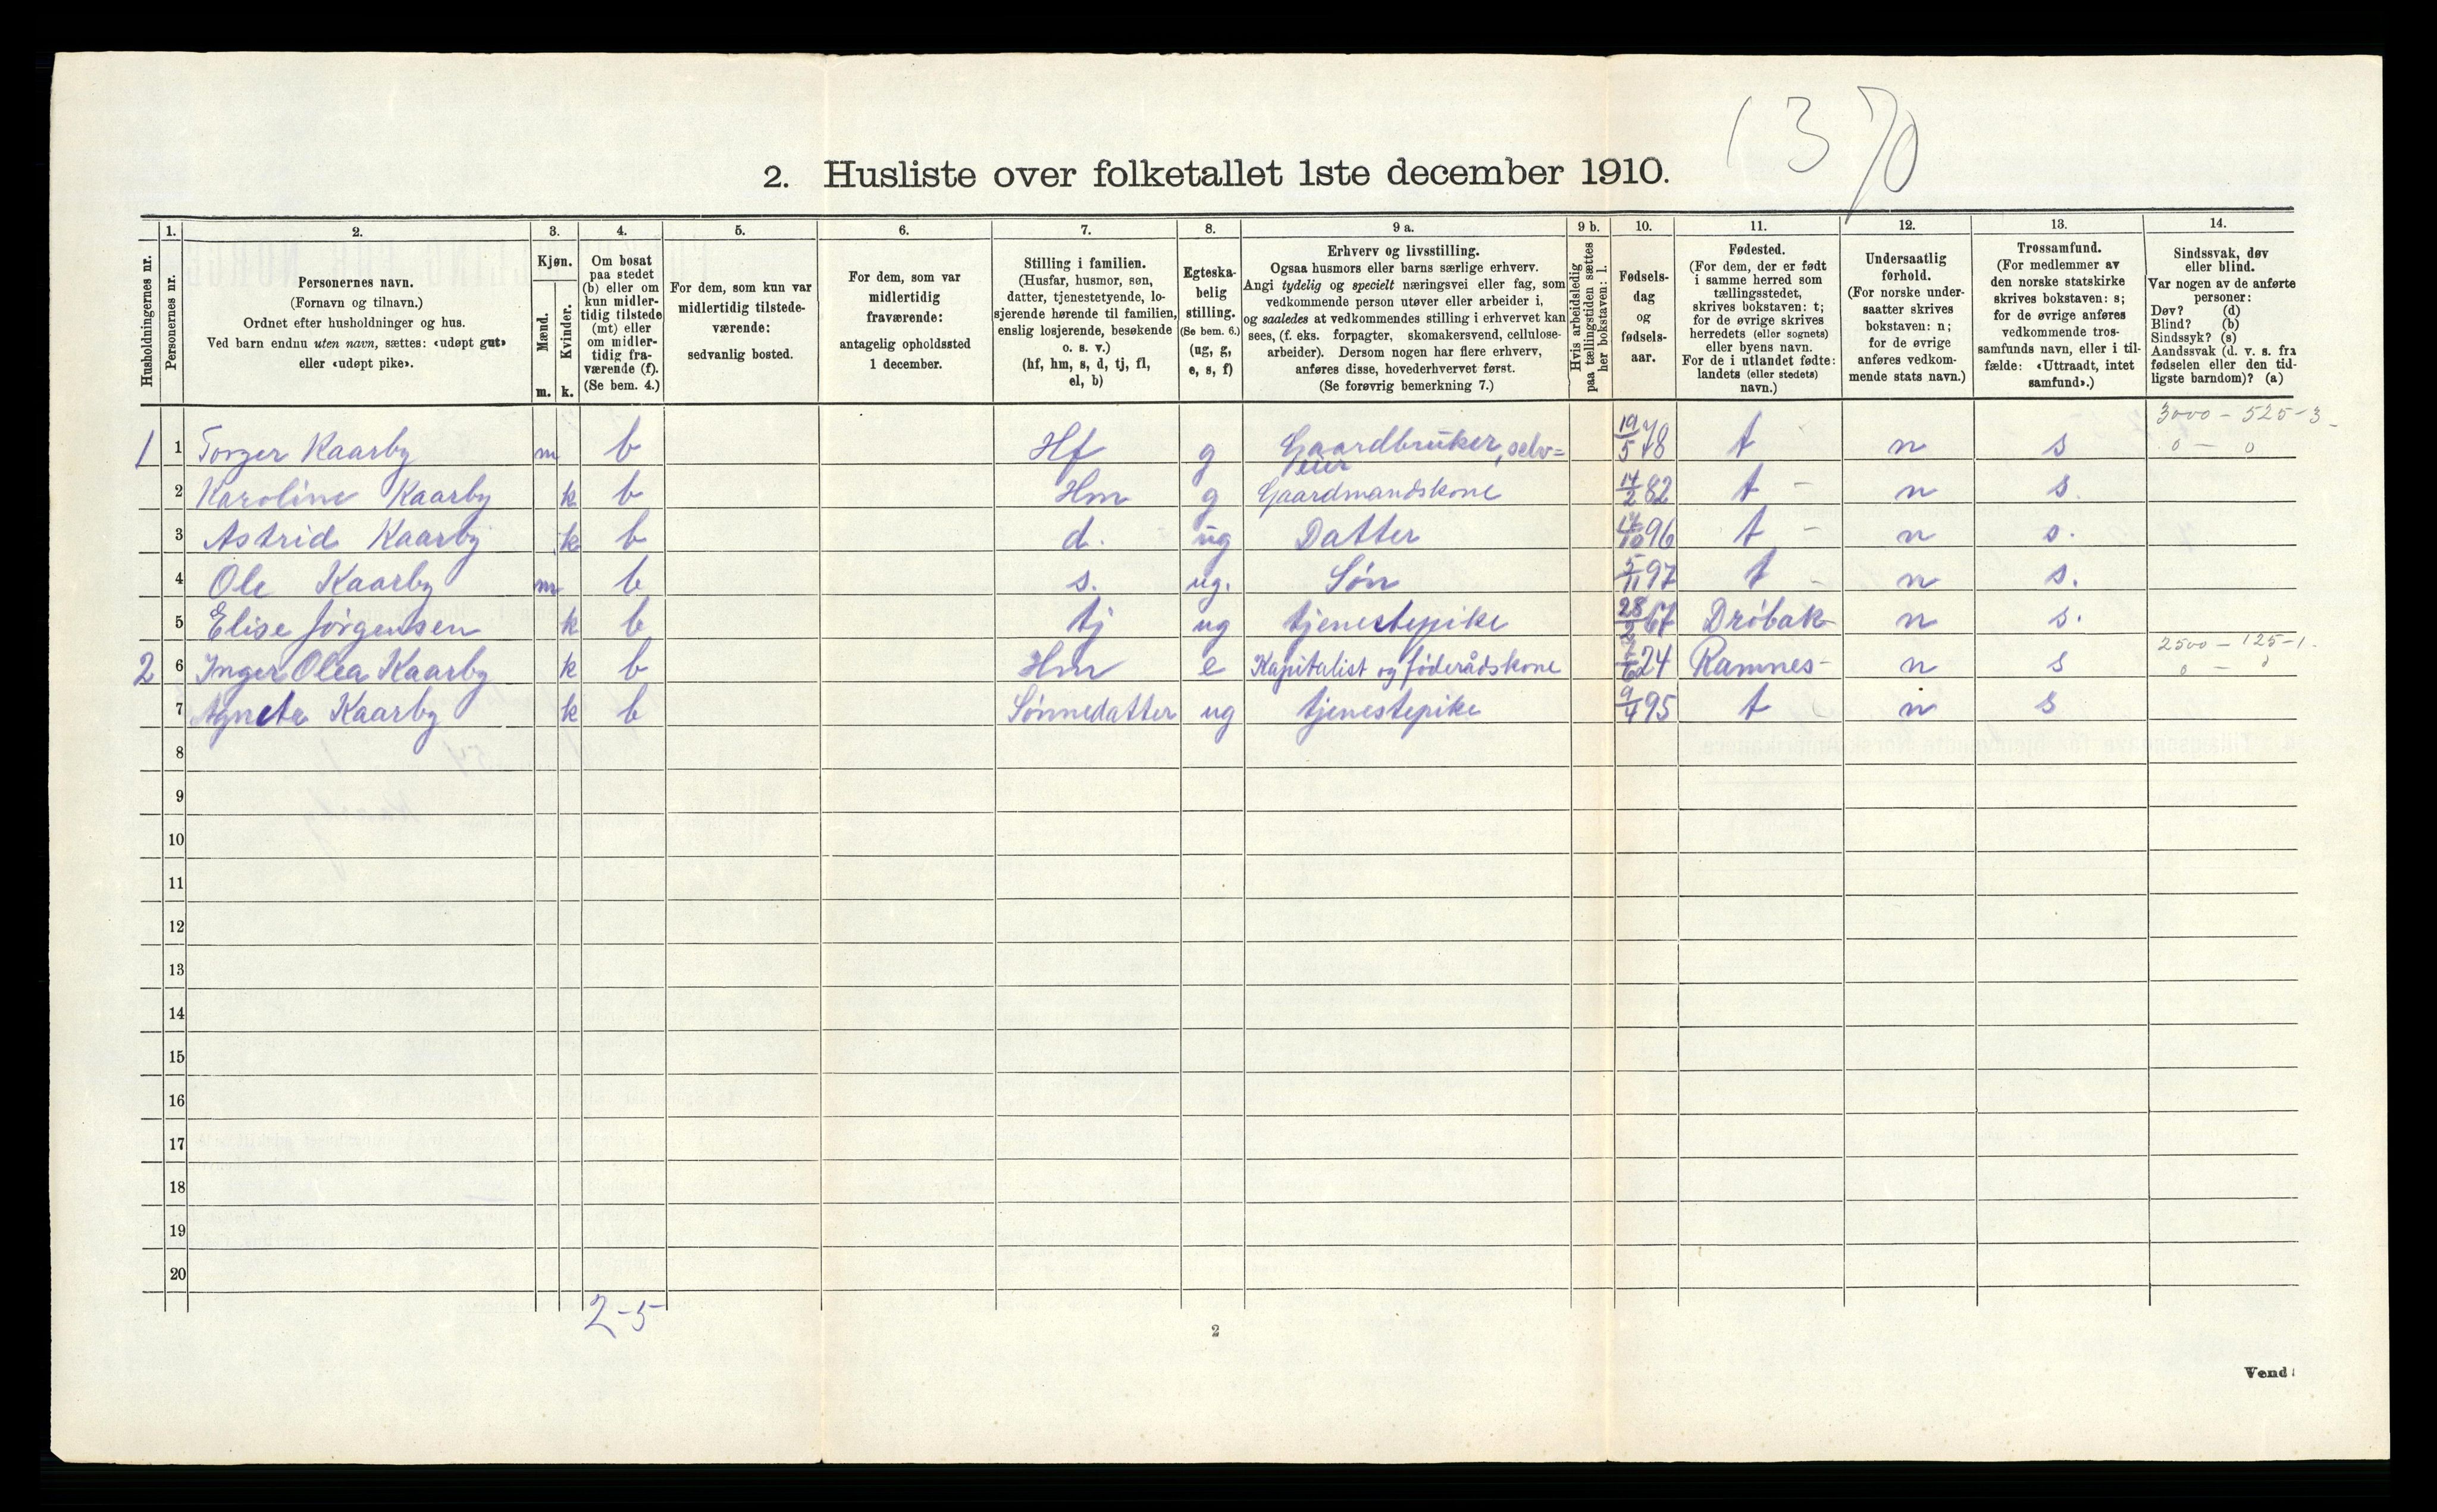 1370
2. Husliste over folketallet 1ste december 1910.
Husholdningernes nr.
1.
Personernes nr.
2.
Personernes navn.
(Fornavn og tilnavn.)
Ordnet efter husholdninger og hus.
Ved barn endnu uten navn, sættes: «udøpt gut»
eller «udøpt pike».
3.
Kjøn.
Mænd.
Kvinder.
m. k.
4.
Om bosat
paa stedet
(b) eller om
kun midler-
tidig tilstede
(mt) eller
om midler-
tidig fra-
værende (f).
(Se bem. 4.)
5.
For dem, som kun var
midlertidig tilstede-
værende:
sedvanlig bosted.
6.
For dem, som var
midlertidig
fraværende:
antagelig opholdssted
1 december.
7.
Stilling i familien.
(Husfar, husmor, søn,
datter, tjenestetyende, lo-
sjerende hørende til familien,
enslig losjerende, besøkende
o. s. v.)
(hf, hm, s, d, tj, fl,
el, b)
8.
Egteska-
belig
stilling.
(Se bem. 6.)
(ug, g,
e, s, f)
9 a.
Erhverv og livsstilling.
Ogsaa husmors eller barns særlige erhverv.
Angi tydelig og specielt næringsvei eller fag, som
vedkommende person utøver eller arbeider i,
og saaledes at vedkommendes stilling i erhvervet kan
sees, (f. eks. forpagter, skomakersvend, cellulose-
arbeider). Dersom nogen har flere erhverv,
anføres disse, hovederhvervet først.
(Se forøvrig bemerkning 7.)
9 b.
Hvis arbeidsledig
paa tællingstiden sættes
her bokstaven: l.
10.
Fødsels-
dag
og
fødsels-
aar.
11.
Fødested.
(For dem, der er født
i samme herred som
tællingsstedet,
skrives bokstaven: t;
for de øvrige skrives
herredets (eller sognets)
eller byens navn.
For de i utlandet fødte:
landets (eller stedets)
navn.)
12.
Undersaatlig
forhold.
(For norske under-
saatter skrives
bokstaven: n;
for de øvrige
anføres vedkom-
mende stats navn.)
13.
Trossamfund.
(For medlemmer av
den norske statskirke
skrives bokstaven: s;
for de øvrige anføres
vedkommende tros-
samfunds navn, eller i til-
fælde: «Uttraadt, intet
samfund».)
14.
Sindssvak, døv
eller blind.
Var nogen av de anførte
personer:
Døv? (d)
Blind? (b)
Sindssyk? (s)
Aandssvak (d. v. s. fra
fødselen eller den tid-
ligste barndom)? (a)
3000 - 525 - 3
1 1 Torger Kaarby m b Hf g Gaardbruker, selv= 19/5 48 t n s 0 - 0
eier
2 Karoline Kaarby k b Hm g Gaardmandskone 14/2 82 t - n s.
3 Astrid Kaarby k b d. ug Datter 96 t - n s.
4 Ole Kaarby m b s. ug. Søn 5/11 97 t - n s.
5 Elise Jørgensen k b tj ug tjenestepike 28/2 67 Drøbak n s.
2500 - 125 - 1.
2 6 Inger Olea Kaarby k b Hm e Kapitalist og føderådskone 24 Ramnes - n s 0 - 0
7 Agneta Kaarby k b Sønnedatter ug tjenestepike 9/4 95 t n s
8
9
10
11
12
13
14
15
16
17
18
19
20
2-5
2
Vend!